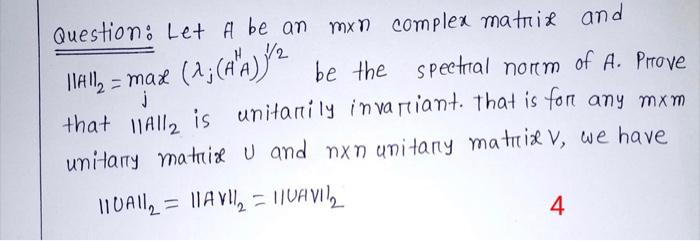 Question: Let A be an mxn complex matrix and
||A||₂ = max_j (λ_j(AᴴA))^{1/2} be the spectral norm of A. Prove
that ||A||₂ is unitarily invariant. That is for any mxm
unitary matrix U and nxn unitary matrix V, we have
||UA||₂ = ||AV||₂ = ||UAV||₂
4